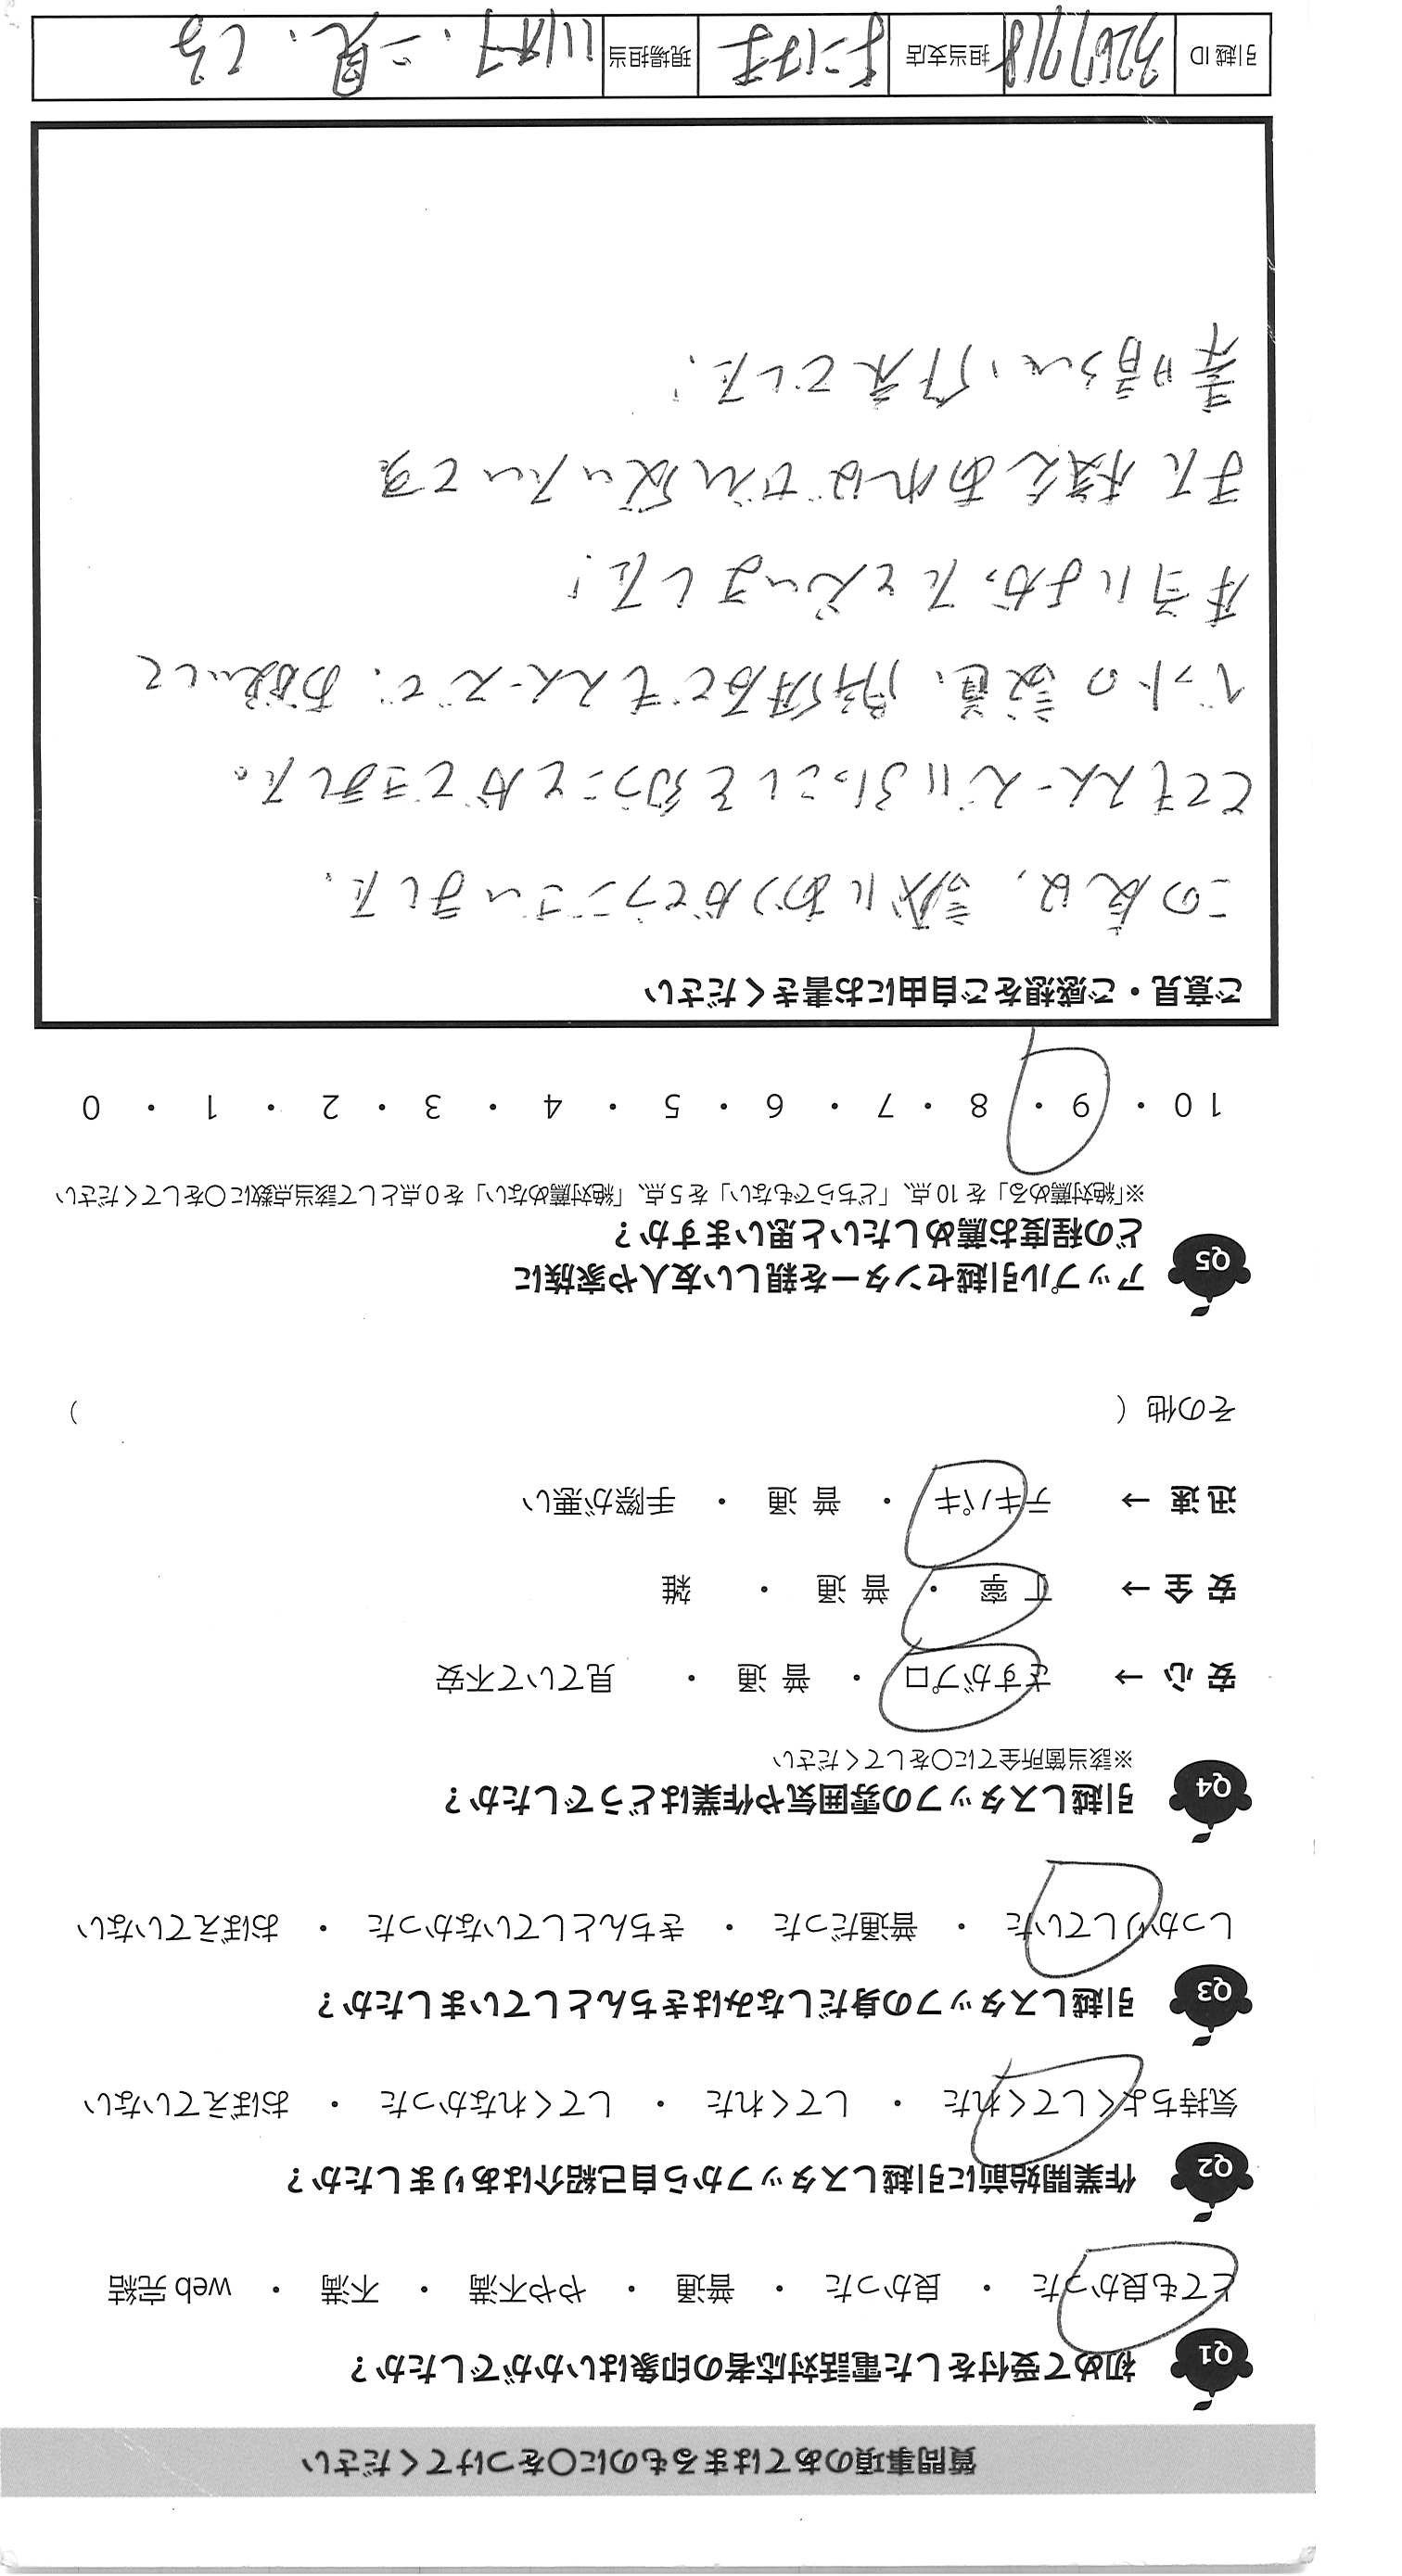 質問事項のあてはまるものに○をつけてください
Q1 初めて受付をした電話対応者の印象はいかがでしたか？
とても良かった ・ 良かった ・ 普通 ・ やや不満 ・ 不満 ・ web 完結
Q2 作業開始前に引越しスタッフから自己紹介はありましたか？
気持ちよくしてくれた ・ してくれた ・ してくれなかった ・ おぼえていない
Q3 引越しスタッフの身だしなみはきちんとしていましたか？
しっかりしていた ・ 普通だった ・ きちんとしていなかった ・ おぼえていない
Q4 引越しスタッフの雰囲気や作業はどうでしたか？
※該当箇所全てに○をしてください
安心 → さすがプロ ・ 普通 ・ 見ていて不安
安全 → 丁寧 ・ 普通 ・ 雑
迅速 → テキパキ ・ 普通 ・ 手際が悪い
その他（ ）
Q5 アップル引越センターを親しい友人や家族に
どの程度お薦めしたいと思いますか？
※「絶対薦める」を10点、「どちらでもない」を5点、「絶対薦めない」を0点として該当点数に○をしてください
10 ・ 9 ・ 8 ・ 7 ・ 6 ・ 5 ・ 4 ・ 3 ・ 2 ・ 1 ・ 0
ご意見・ご感想をご自由にお書きください
この度は、誠にありがとうございました、
とてもスムーズに引っこしを行うことができました。
ベットの設置、解体などもスムーズで、お願いして
本当によかったと思いました！
また機会あればぜひ使いたいです
素晴らしい、仕事でした！
引越ID 3267718 担当支店 よこはま 現場担当 二見、